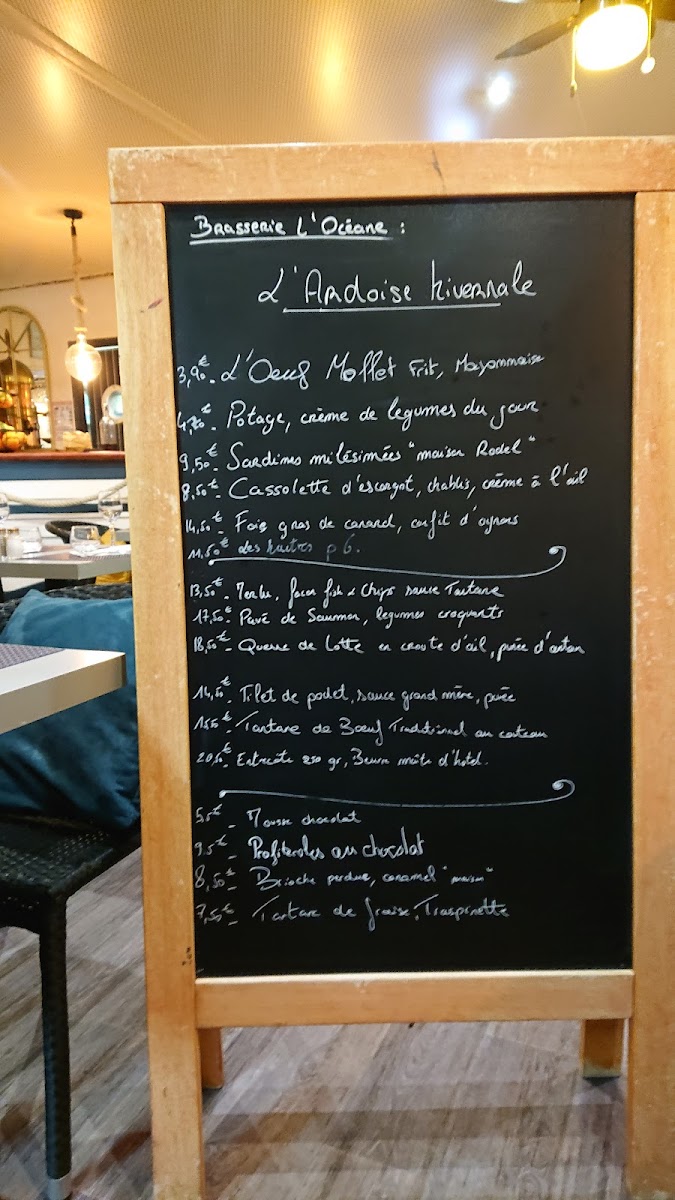 Brasserie L'Océane :
L'Ardoise hivernale
3,90€- L'Oeuf Mollet Frit, Mayonnaise
4,70€- Potage, crème de legumes du jour
9,50€- Sardines milésimées "maison Rodel"
8,50€- Cassolette d'escargot, chablis, crème à l'ail
14,50€- Foie gras de canard, confit d'oignons
11,50€ des huitres p 6.
13,50€- Merlu, facon fish & Chips sauce Tartare
17,50€- Pavé de Saumon, legumes croquants
18,50€- Queue de Lotte en croute d'ail, purée d'antan
14,50€- Filet de poulet, sauce grand mère, purée
Tartare de Boeuf Traditionnel au couteau
20,50€- Entrecôte 250 gr, Beurre maître d'hotel.
5,5€- Mousse chocolat
9,5€- Profiteroles au chocolat
8,50€- Brioche perdue, caramel "maison"
7,50€- Tartare de fraise,